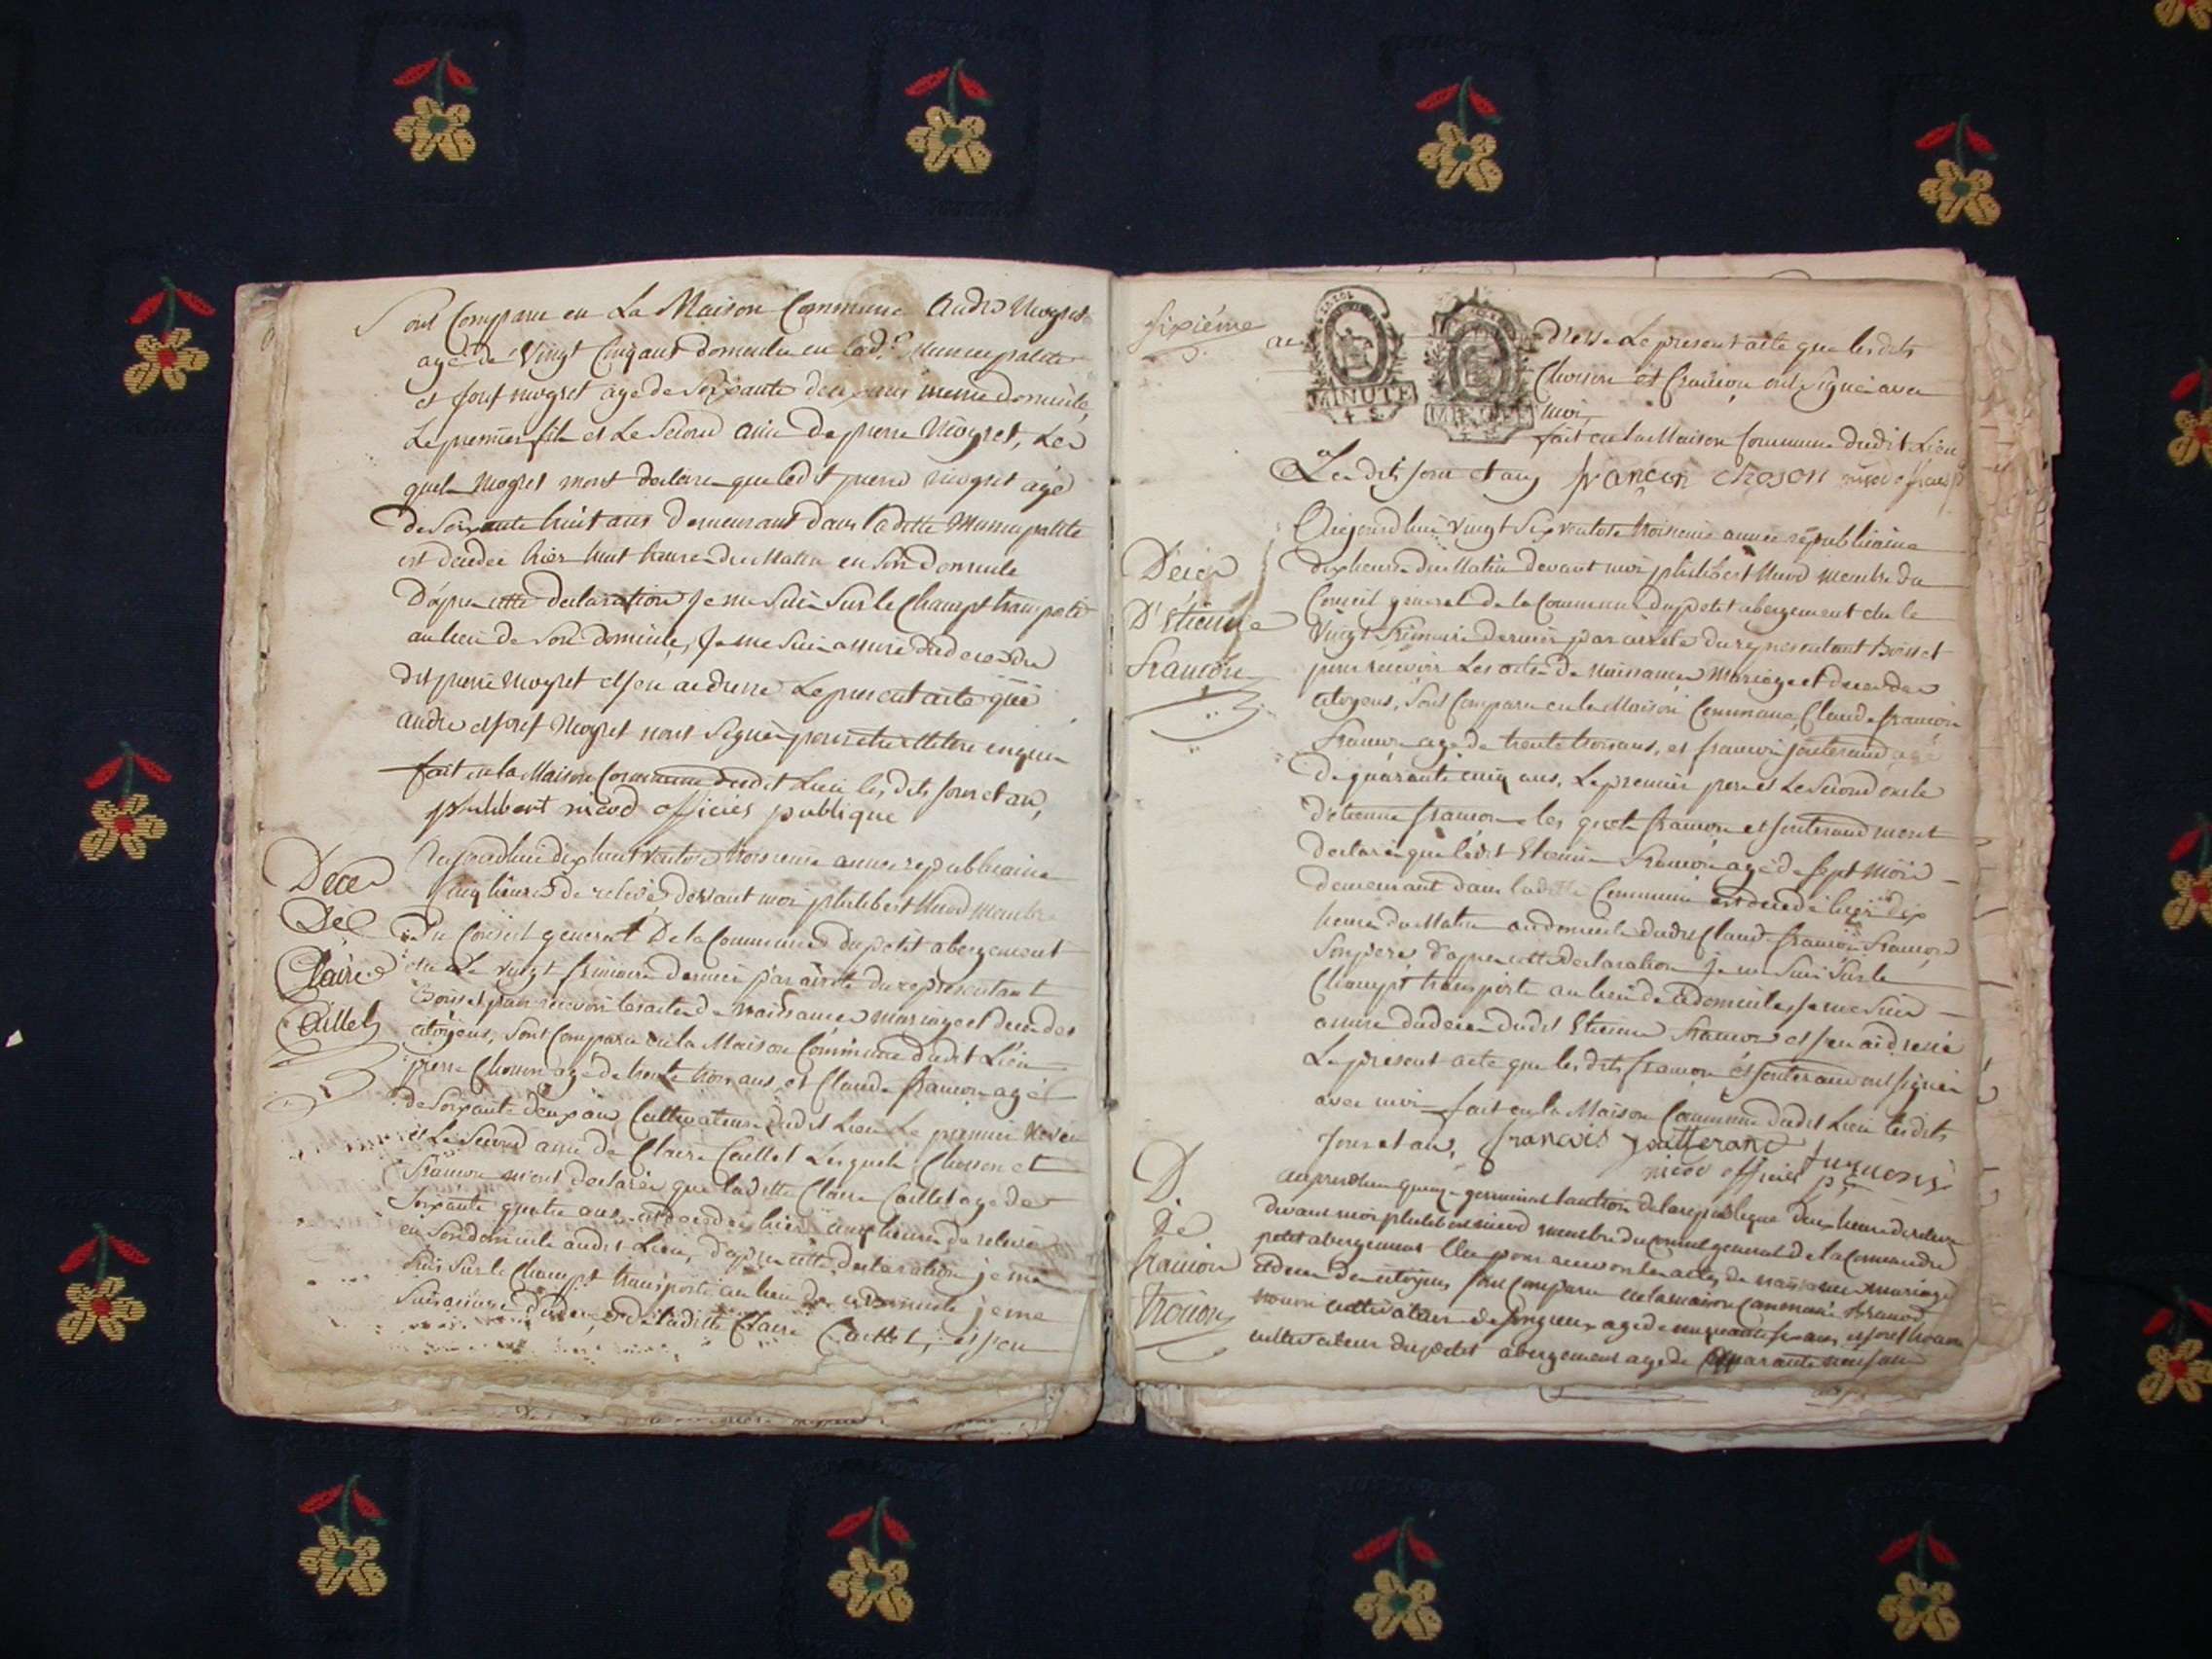 Sont Comparu en La Maison Commune André Mogret
agé de Vingt Cinq ans domicilie en lad.e Municipalité
et Josef mogret agé de Soixante deux ans meme domicile,
Le premier fils et Le Second ami de pierre Mogret, Les
quels Mogret mont declare que ledit pierre mogret agé
de Soixante huit ans demeurant dans ladette Municipalité
est decedee hier huit heure du Matin en Son domicile
D'apres cette declaration Je me Suis Sur le Champt transporté
au lieu de Son domicile, Je me Suis assuré du deces du
dit pierre Mogret et j'en ai dresse Le present acte que
andre et Josef Mogret nont Signé pour etre illitere enquis
fait en la Maison Commune dudit Lieu les dits jour et an,
philibert nicod officier publique
Deces
De
Claire
Caillet
aujourdhui dix huit Ventose troisieme annee republicaine
cinq heures de relevé devant moi philibert Nicod membre
Du Conseil general De la Commune du petit abergement
elu Le vingt frimaire dernier par arreté du representant
Boisset pour recevoir les actes de naissances mariages et deces des
citoyens, Sont Comparu en la Maison Commune dudit Lieu
pierre Choson agé de trente trois ans, et Claude framion agé
de Soixante deux ans Cultivateurs dudit Lieu Le premier Neveu
et Le Second ami de Claire Caillet Lesquels Choson et
framion m'ont declarés que ladette Claire Caillet agé de
Soixante quatre ans est decedes hier cinq heures de relevé
en Son domicile audit Lieu, d'apres cette declaration je me
Suis Sur le Champt transporté au lieu de ce domicile je me
Suis assuré du deces de ladette Claire Caillet, et j'en
sixiéme
ai
MINUTE
MINUTE
dresse Le present acte que les dits
Choson et framion ont signé avec
moi
fait en la Maison Commune dudit Lieu
Les dits jour et an françois choson nicod officier p
Deces
D'étienne
framion
Aujourdhui vingt Six ventose troisieme année republicaine
dix heures du Matin devant moi philibert Nicod membre du
Conseil general de la Commune du petit abergement elu le
Vingt frimaire dernier par arreté du representant Boisset
pour recevoir Les actes de Naissances Mariages et deces des
citoyens, Sont Comparu en la Maison Commune, Claude françois
framion agé de trente trois ans, et francois jouterand agé
de quarante cinq ans, Le premier pere et Le Second oncle
d'etienne framion les quels framion et jouterand mont
declarés que ledit Etienne framion agé de Sept Mois
demeurant dans ladette Commune est decedé hier dix
heures du Matin au domicile dudit Claude françois framion
Son pere d'apres cette declaration je me Suis Sur le
Champt transporté au lieu de ce domicile je me Suis
assuré du deces dudit Etienne framion et j'en ai dressé
Le present acte que les dits framion et jouterand ont signés
avec moi fait en la Maison Commune dudit Lieu les dits
jour et an, francois joutterand
nicod officier p
D.
De
framion
trocon
aujourdhui quinze germinal lan trois de la republique deux heure de releve
devant moi philibert nicod membre du conseil general de la Comune du
petit abergement Elu pour recevoir les actes de naissance mariage
et deces des citoyens sont comparu en la maison Commune
cultivateur de songieux agé de cinquante six ans et josef
cultivateur du petit abergement agé de quarante neuf ans